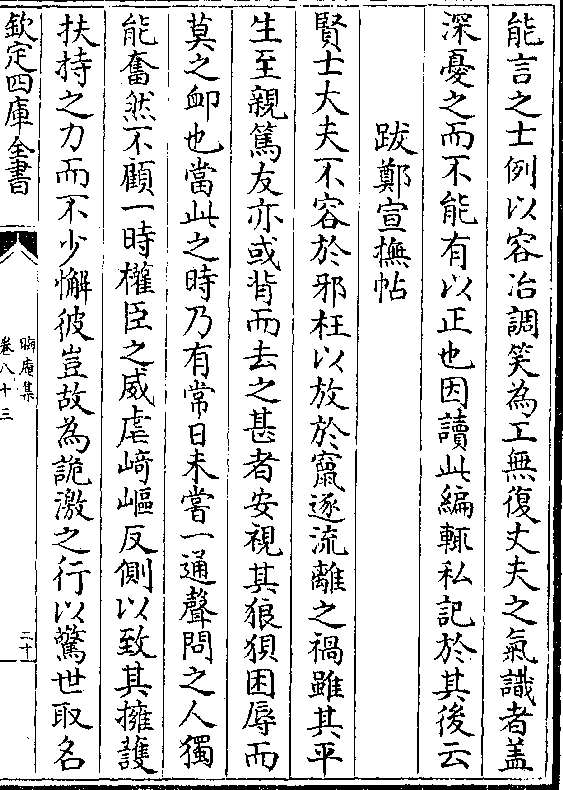 能言之士例以容冶調笑為工無復丈夫之氣識者盖
深憂之而不能有以正也因讀此編輒私記於其後云
跋鄭宣撫帖
賢士大夫不容於邪枉以放於竄逐流離之禍雖其平
生至親篤友亦或背而去之甚者安視其狼狽困辱而
莫之䘏也當此之時乃有常日未嘗一通聲問之人獨
能奮然不顧一時權臣之威虐崎嶇反側以致其擁護
扶持之力而不少懈彼豈故為詭激之行以驚世取名
欽定四庫全書
晦庵集
卷八十三
二十